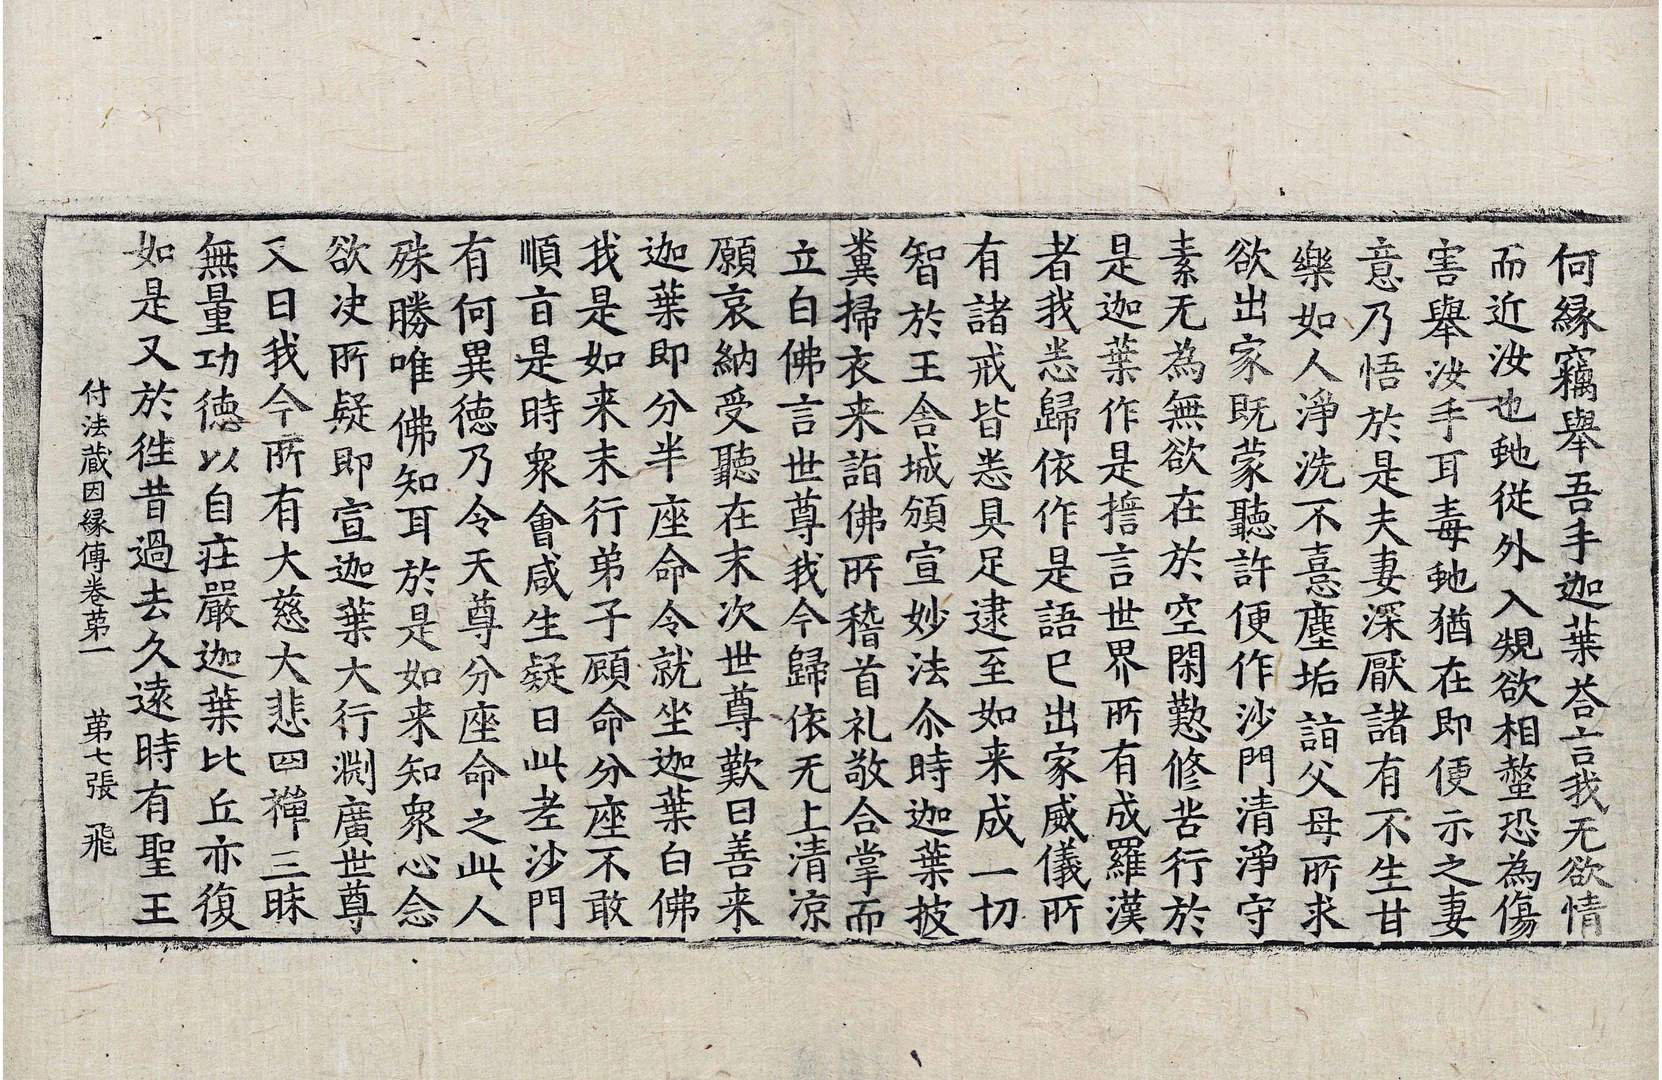 何縁竊舉吾手迦葉荅言我无欲情
而近汝也虵從外入規欲相螫恐為傷
害舉汝手耳毒虵猶在即便示之妻
意乃悟於是夫妻深厭諸有不生甘
樂如人淨洗不憙塵垢詣父母所求
欲出家既蒙聽許便作沙門清淨守
素无為無欲在於空閑懃修苦行於
是迦葉作是擔言世界所有成羅漢
者我悉歸依作是語已出家威儀所
有諸戒皆悉具足逮至如来成一切
智於王舍城頒宣妙法尒時迦葉披
糞掃衣来詣佛所稽首礼敬合掌而
立白佛言世尊我今歸依无上清凉
願哀納受聽在末次世尊歎曰善来
迦葉即分半座命令就坐迦葉白佛
我是如来末行弟子顧命分座不敢
順㫖是時衆會咸生疑曰此老沙門
有何異德乃令天尊分座命之此人
殊勝唯佛知耳於是如来知衆心念
欲决所疑即宣迦葉大行淵廣世尊
又曰我今所有大慈大悲四禪三昧
無量功德以自庄嚴迦葉比丘亦復
如是又於徃昔過去久遠時有聖王
付法蔵因縁傳卷苐一 苐七張 飛